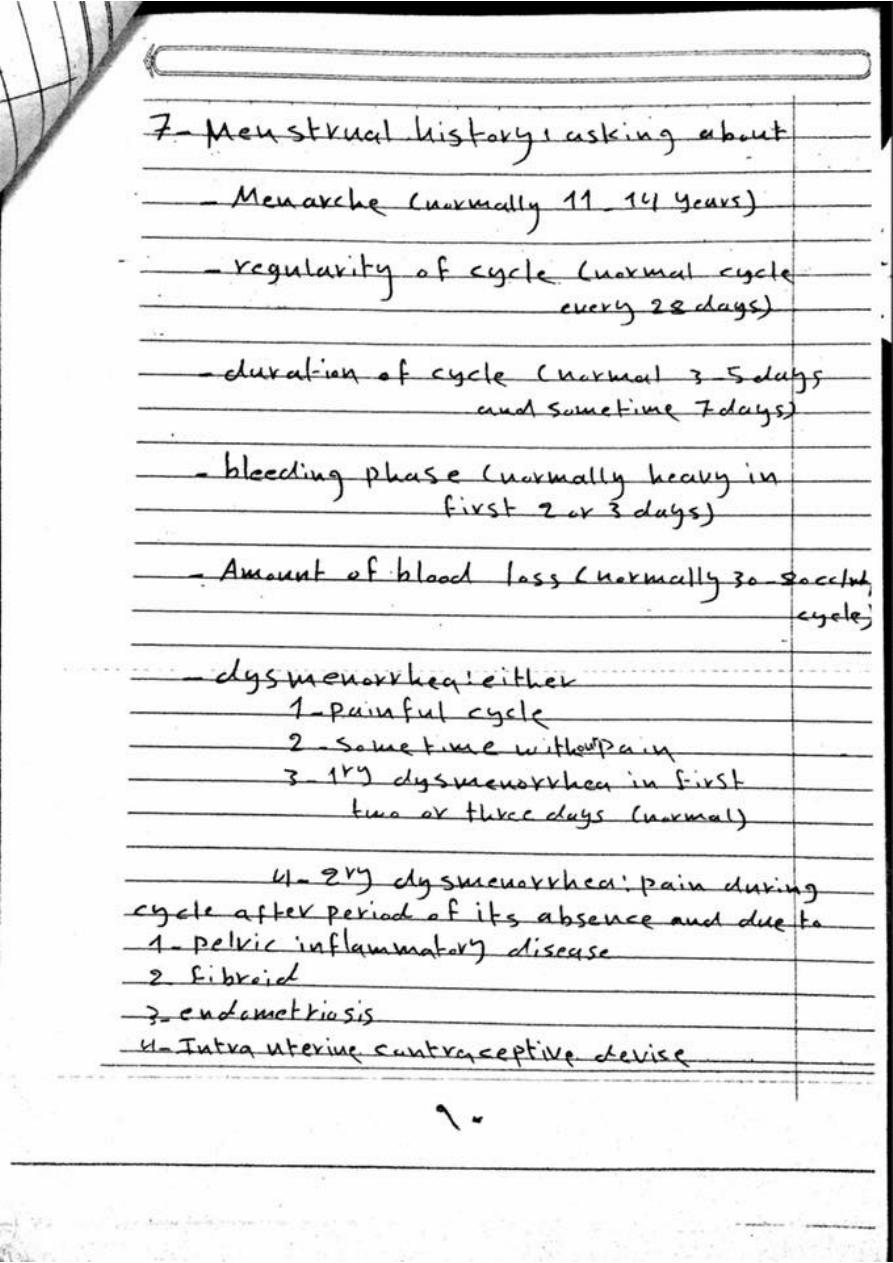 7- Menstrual history: asking about
- Menarche (normally 11-14 years)
- regularity of cycle (normal cycle
every 28 days)
- duration of cycle (normal 3-5 days
and sometime 7 days)
- bleeding phase (normally heavy in
first 2 or 3 days)
- Amount of blood loss (normally 30-80cc/
cycle)
- dysmenorrhea: either
1- painful cycle
2- sometime without pain
3- 1ry dysmenorrhea in first
two or three days (normal)
4- 2ry dysmenorrhea: pain during
cycle after period of its absence and due to
1- pelvic inflammatory disease
2- fibroid
3- endometriosis
4- Intra uterine contraceptive devise
٩٠